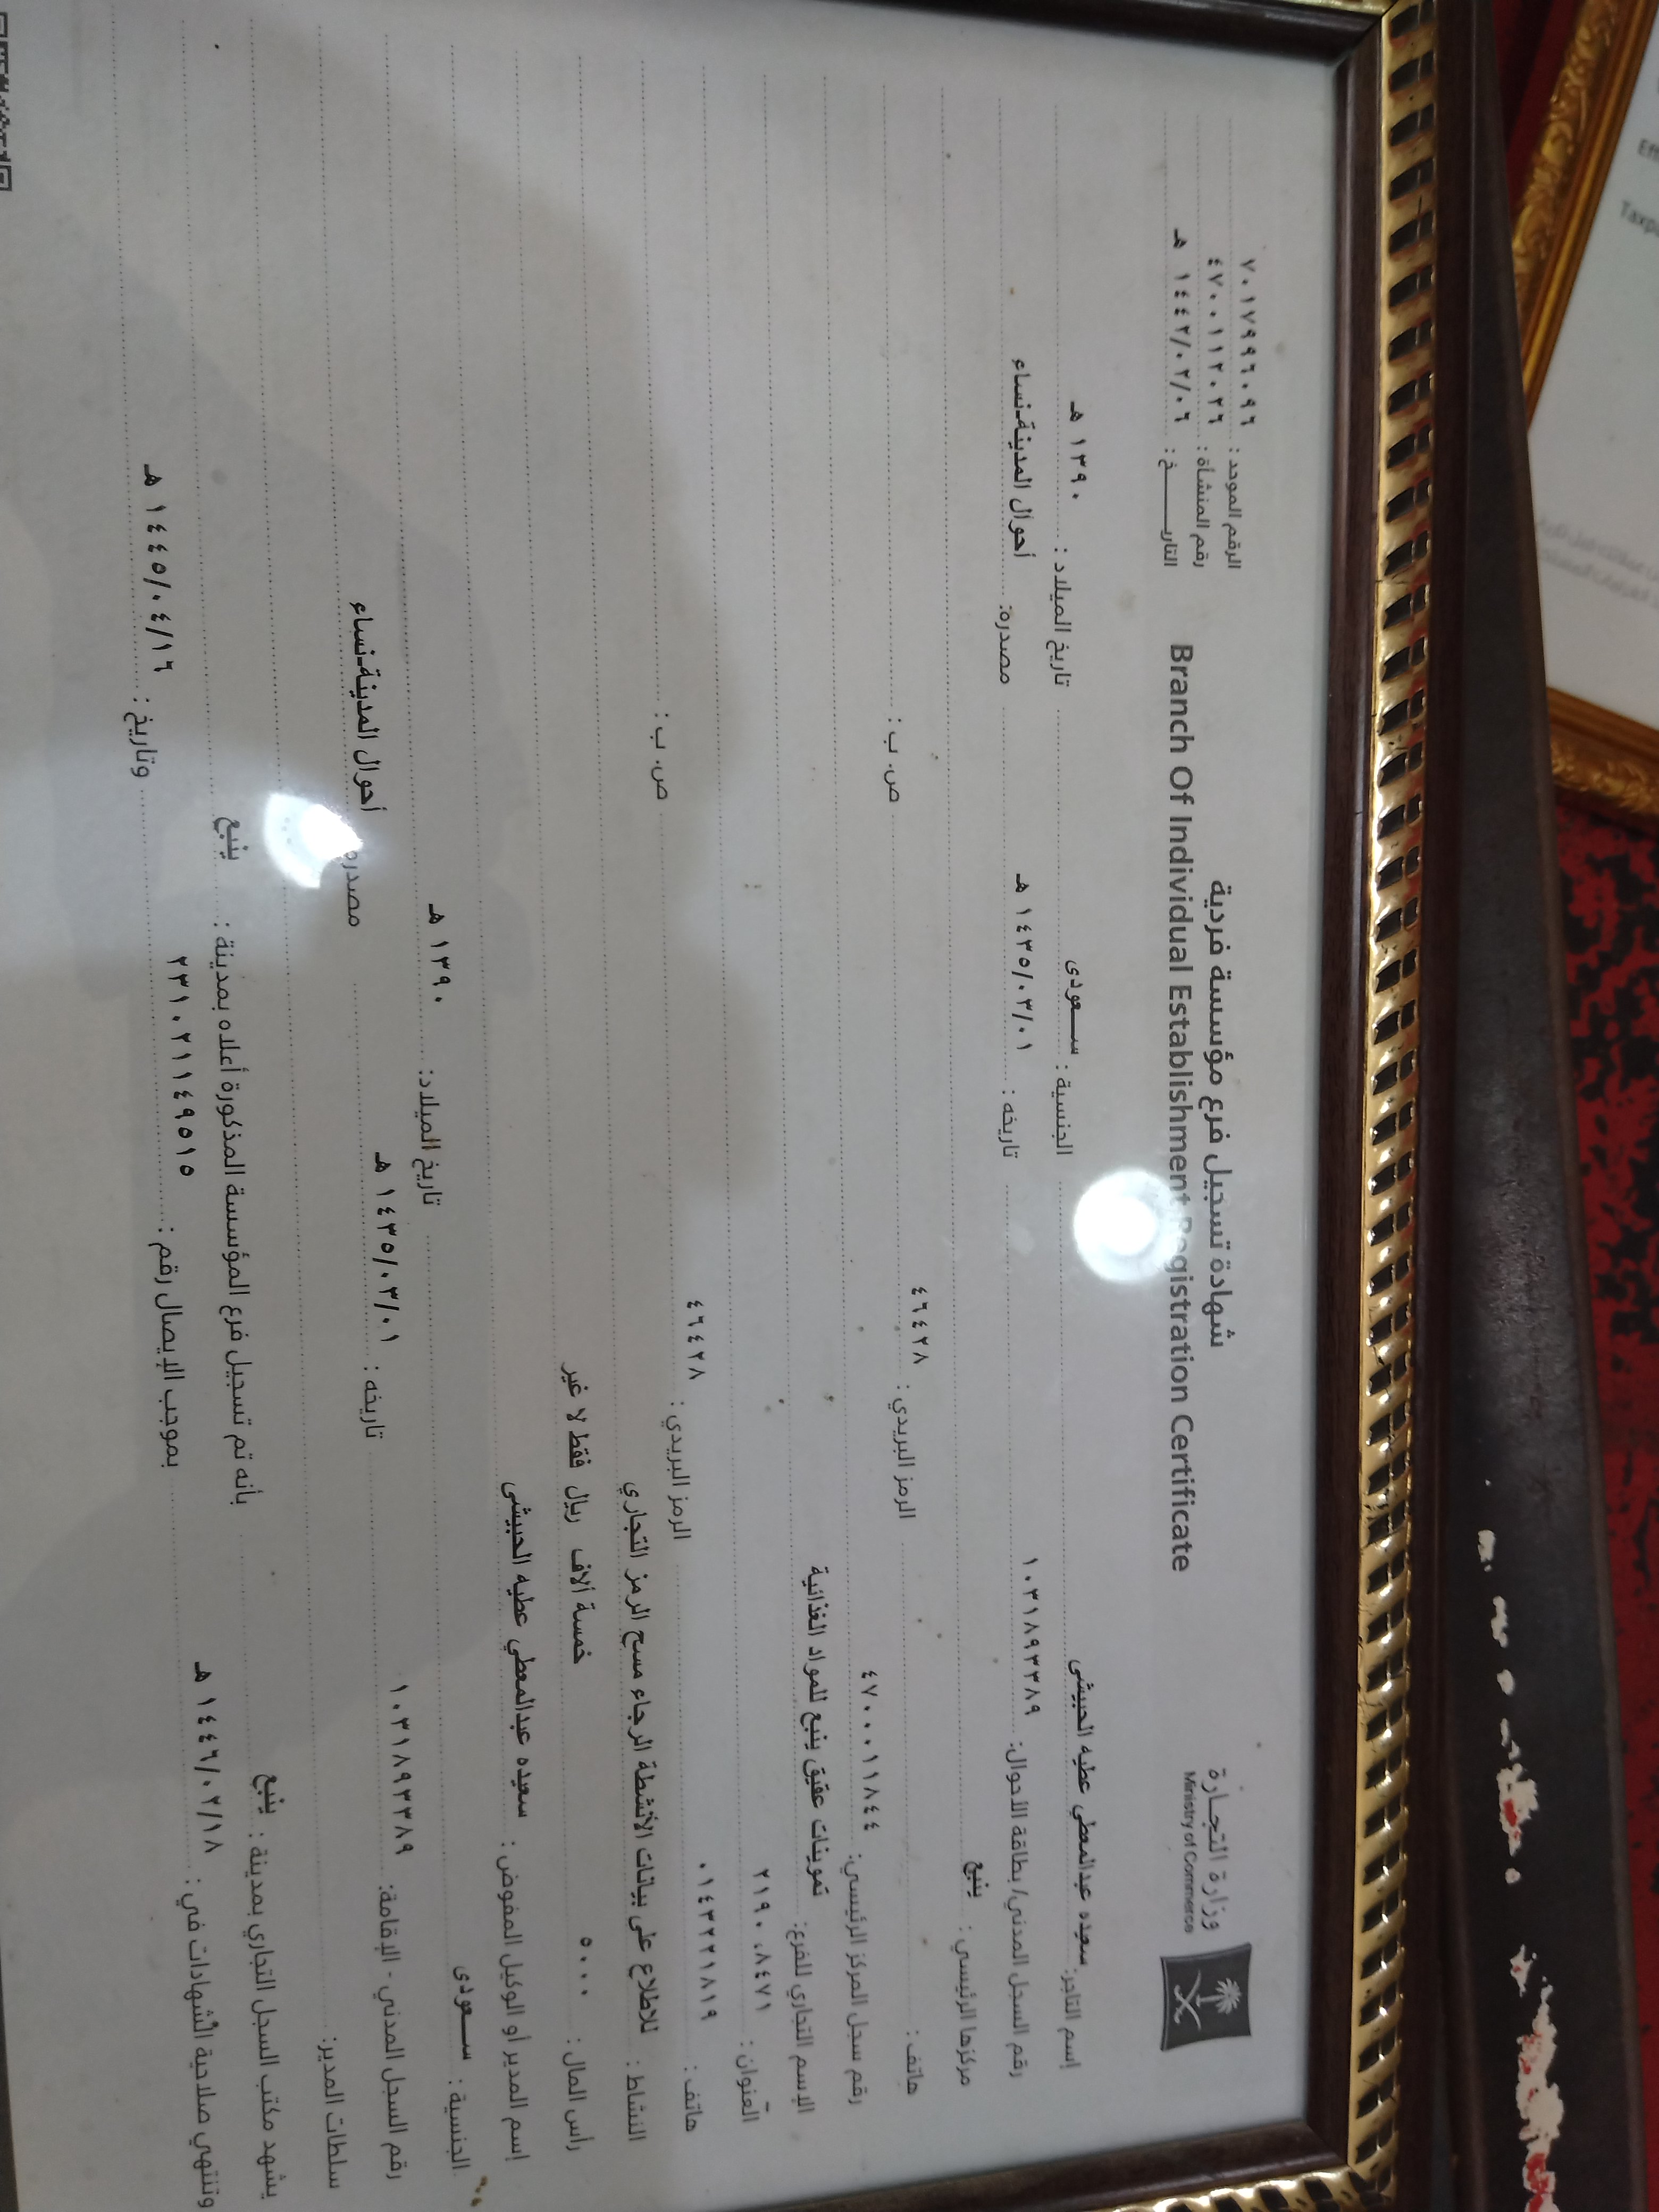 وزارة التجـارة
Ministry of Commerce
شهادة تسجيل فرع مؤسسة فردية
Branch Of Individual Establishment Registration Certificate
الرقم الموحد : ٧٠١٧٩٩٦٠٩٦
رقم المنشأة : ٤٧٠٠١١٢٠٢٦
التاريـــــخ : ١٤٤٢/٠٢/٠٦ هـ
إسم التاجر: سعيده عبدالمعطي عطيه الحبيشى الجنسية : سـعودى تاريخ الميلاد : ١٣٩٠ هـ
رقم السجل المدني/ بطاقة الأحوال: ١٠٣١٨٩٣٣٨٩ تاريخه : ١٤٣٥/٠٣/٠١ هـ مصدره: أحوال المدينة-نساء
مركزها الرئيسي : ينبع
هاتف : الرمز البريدي : ٤٦٤٢٨ ص. ب :
رقم سجل المركز الرئيسي: ٤٧٠٠٠١١٨٤٤
الإسم التجاري للفرع: تموينات عقيق ينبع للمواد الغذائية
العنوان : ٢١٩٠،٨٤٧١
هاتف : ٠١٤٣٢٢١٨١٩ الرمز البريدي : ٤٦٤٢٨ ص. ب :
النشاط : للاطلاع على بيانات الأنشطة الرجاء مسح الرمز التجاري
رأس المال : ٥٠٠٠ خمسة آلاف ريال فقط لا غير
إسم المدير أو الوكيل المفوض : سعيده عبدالمعطي عطيه الحبيشى
الجنسية : سـعودى تاريخ الميلاد: ١٣٩٠ هـ
رقم السجل المدني - الإقامة: ١٠٣١٨٩٣٣٨٩ تاريخه : ١٤٣٥/٠٣/٠١ هـ مصدره أحوال المدينة-نساء
سلطات المدير:
يشهد مكتب السجل التجاري بمدينة : ينبع بأنه تم تسجيل فرع المؤسسة المذكورة أعلاه بمدينة : ينبع
وتنتهي صلاحية الشهادات في : ١٤٤٦/٠٢/١٨ هـ بموجب الإيصال رقم : ٢٣١٠٢١١٤٩٥١٥ وتاريخ : ١٤٤٥/٠٤/١٦ هـ